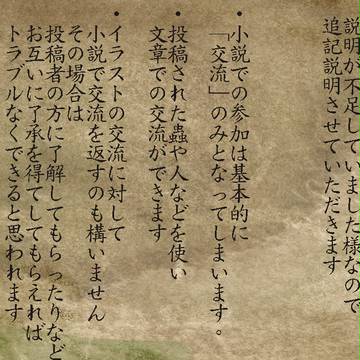 説明が不足していました様なので
追記説明させていただきます
・小説での参加は基本的に
「交流」のみとなってしまいます。
・投稿された蟲や人などを使い
文章での交流ができます
・イラストの交流に対して
小説で交流を返すのも構いません
その場合は
投稿者の方に了解してもらったりなど
お互いに了承を得てしてもらえれば
トラブルなくできると思われます